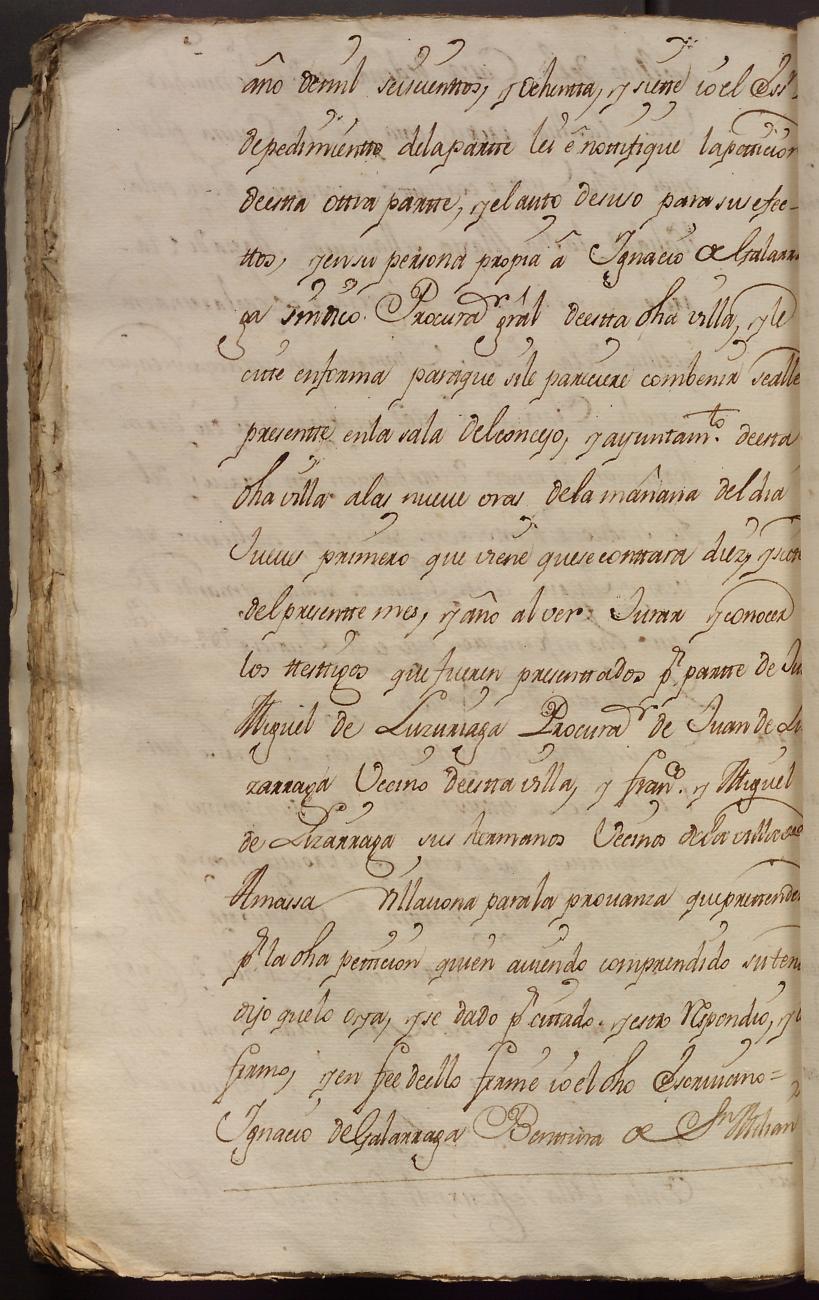 año demil seiscienttos, y ochentta, y siette io el Ess.
depedimientto delaparte lei e nottifique lapetticion
deestta ottra partte, y el auto desuso para sus efec-
ttos, y en su persona propia â Ygnacio de Galarra
ga sindico Procurador gral deestta dha villa, y le
citte enforma paraque sile pareciere combenir sealle
presentte enla sala delconcejo, y ayuntamto. deesta
dha villa alas nueue oras dela mañana del dia
Jueues primero que viene quese conttara diez, y siete
delpresentte mes, y año alver Jurar y conocer
los ttesttigos que fueren presenttados pr partte de Ju
Miguel de Luzuriaga Procurador de Juan de Li
zarraga Vecino deestta villa, y franco. y Miguel
de Lizarraga sus hermanos Vecinos dela villa de
Amassa Villauona para la prouanza que prettenden
pr la dha petticion quien auiendo comprendido su ten
dijo quelo oya, y se dado pr cittado y estto Respondio, y
firmo, y en fee deello firme io el dho Escriuano=
Ygnacio de Galarraga Benttura de Sn Milian